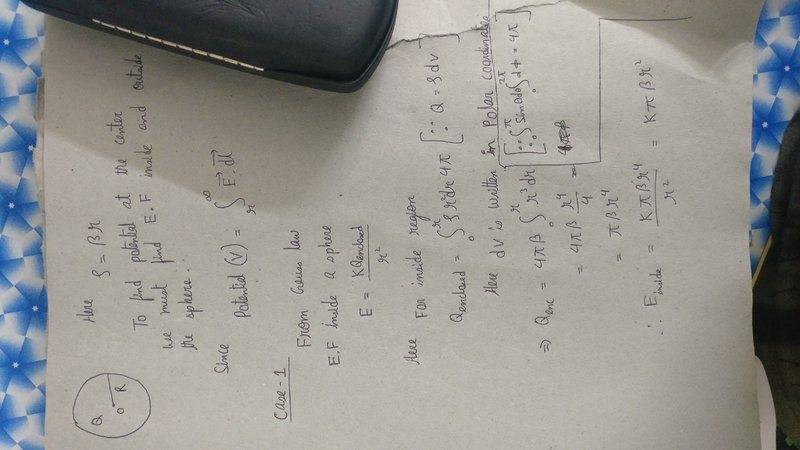 Q
O R
Here ρ = βr
To find potential at the center
we must find E.F inside and outside
the sphere.
Since Potential (V) = ∫_r^∞ E⃗.dl⃗
Case-1
From Gauss law
E.F inside a sphere
E = KQenclosed / r²
Here For inside region
Qenclosed = ∫_0^r ρ r²dr 4π [∵ Q = ρdv]
Here dv is written in Polar coordinates
[∵ ∫_0^π Sinθdθ ∫_0^2π dΦ = 4π]
⇒ Qenc = 4πβ ∫_0^r r³dr
= 4πβ r⁴/4 =
= πβr⁴
∴ Einside = Kπβr⁴ / r² = Kπβr²